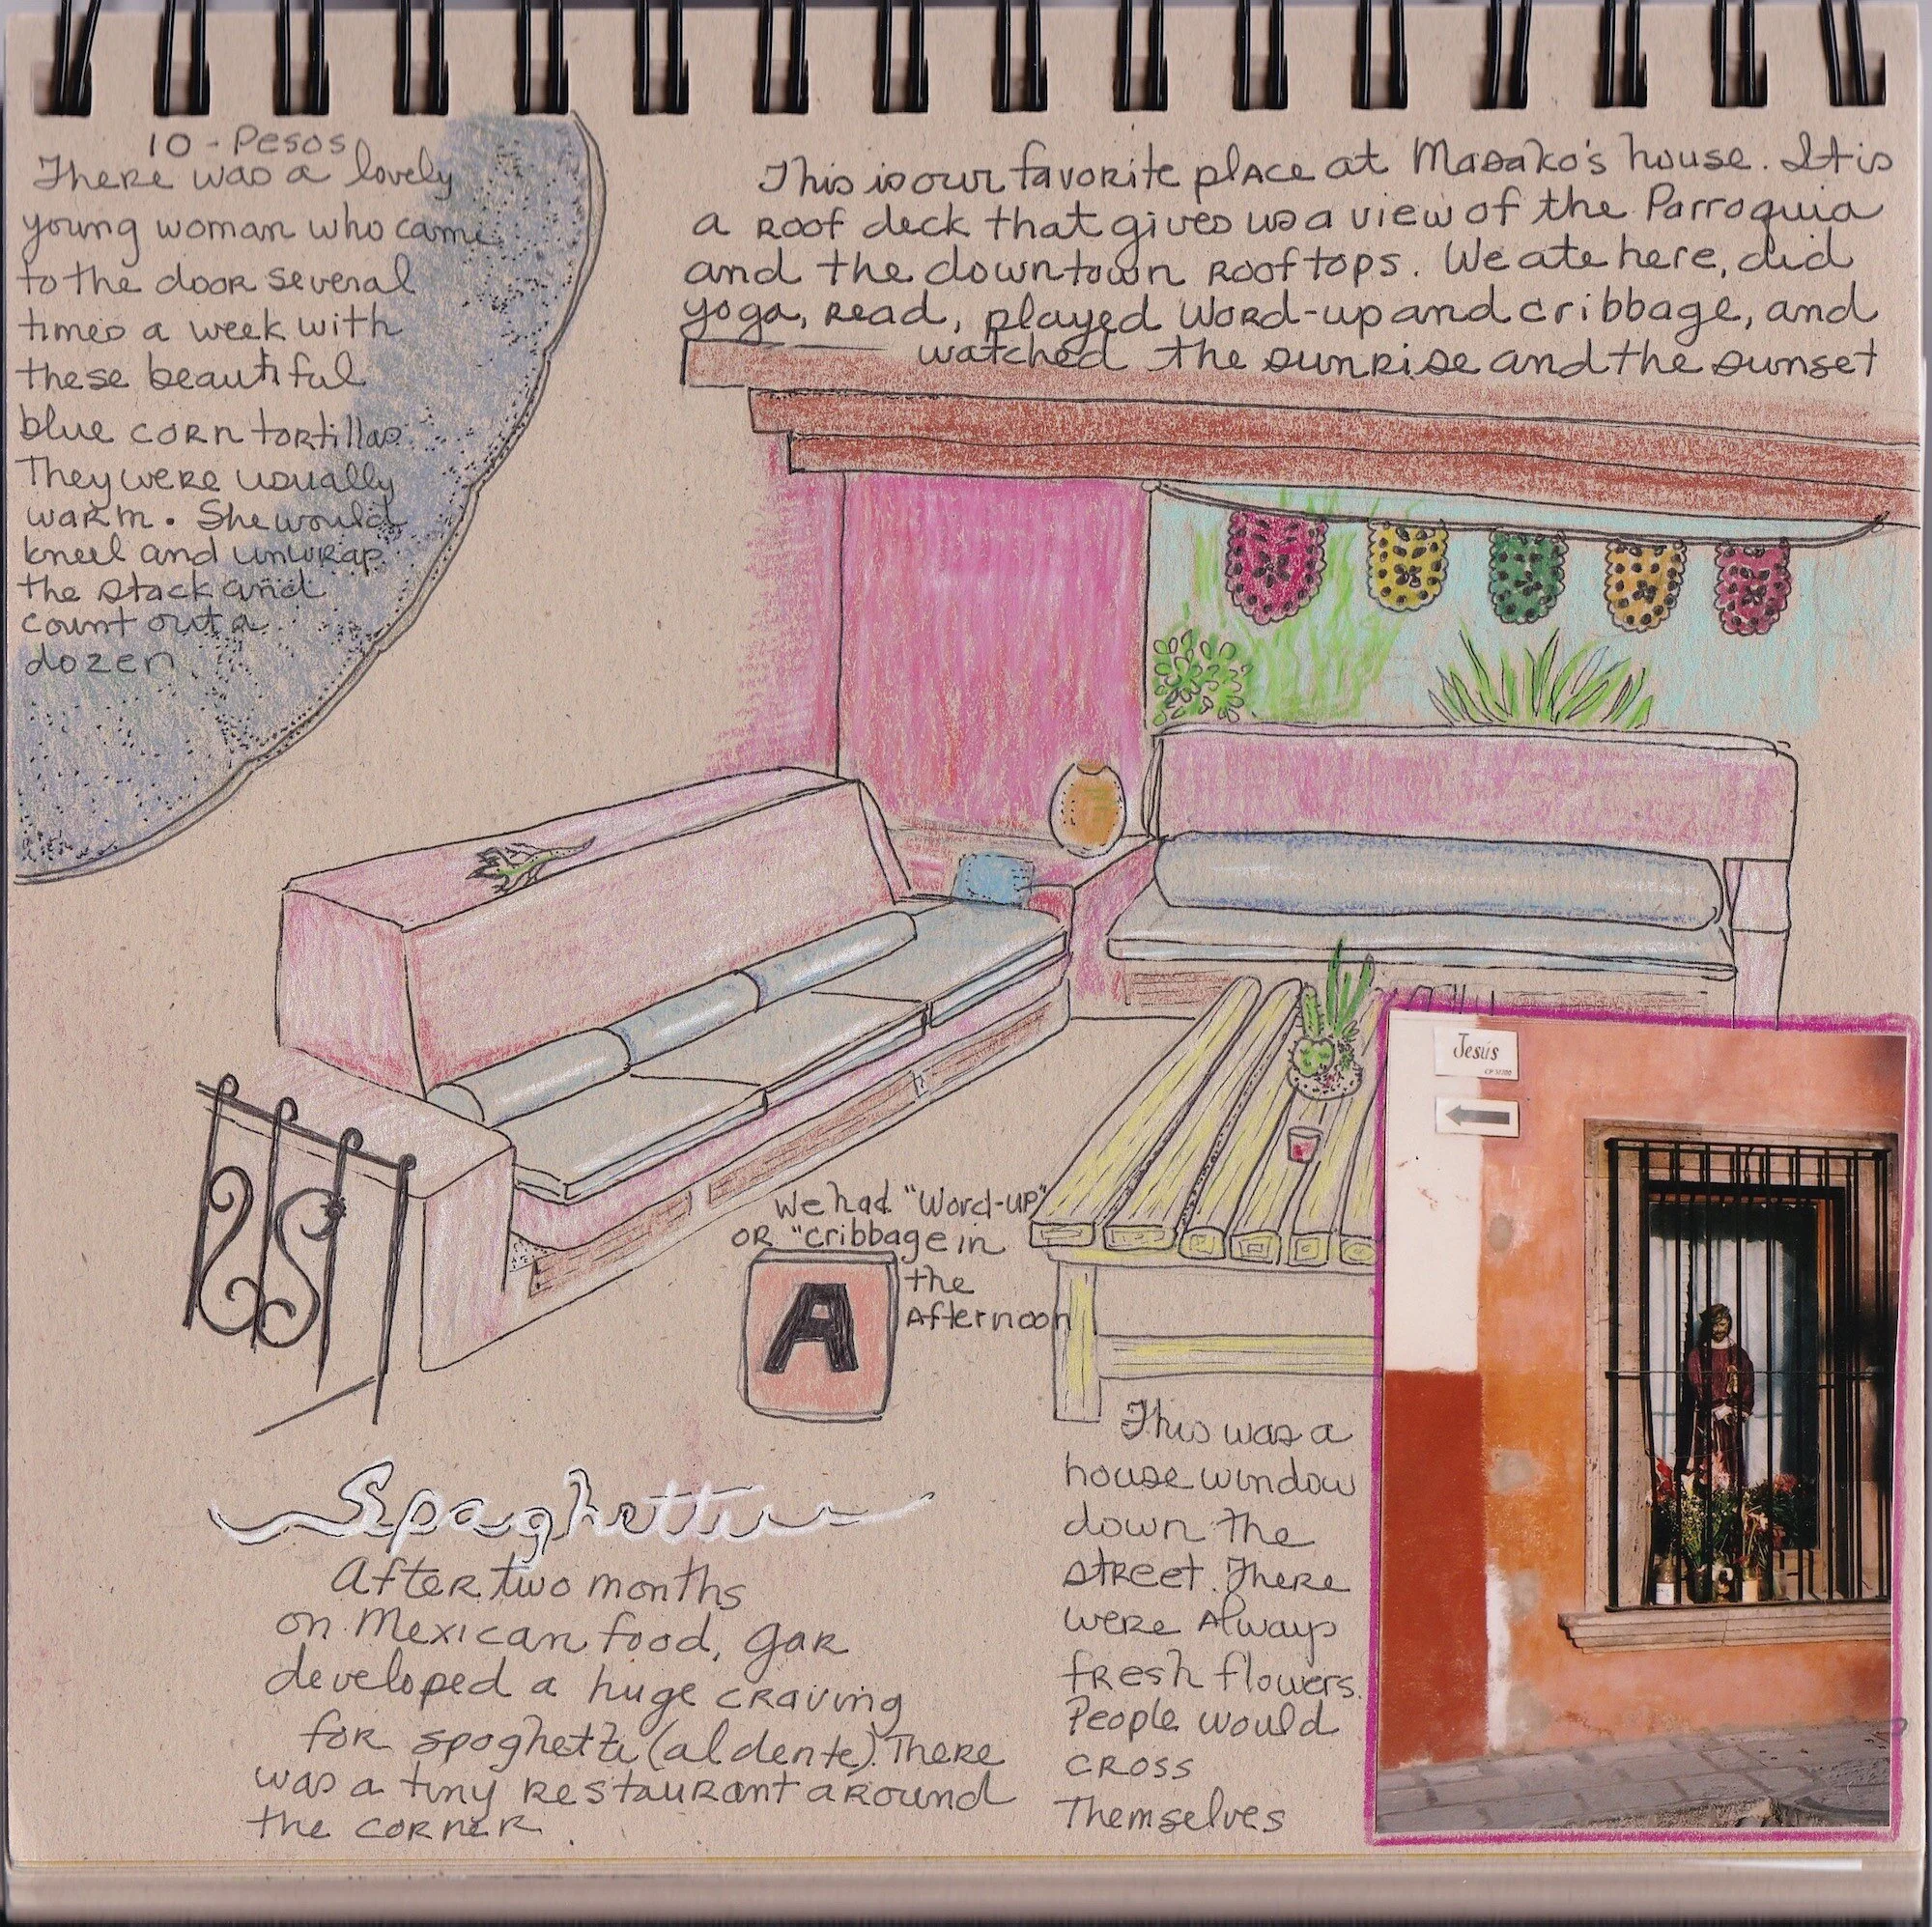 10 - Pesos
There was a lovely
young woman who came
to the door several
times a week with
these beautiful
blue corn tortillas.
They were usually
warm. She would
kneel and unwrap
the stack and
count out a
dozen
This is our favorite place at Masako's house. It is
a roof deck that gives us a view of the Parroquia
and the downtown rooftops. We ate here, did
yoga, read, played Word-up and cribbage, and
watched the sunrise and the sunset
We had "Word-up"
or "cribbage in
the
Afternoon
A
Jesús
This was a
house window
down the
street. There
were always
fresh flowers.
People would
cross
themselves
Spaghetti
After two months
on Mexican food, Gar
developed a huge craving
for spaghetti (al dente). There
was a tiny restaurant around
the corner.